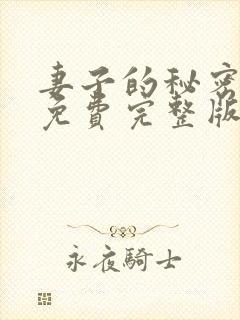 妻子的秘密
免費完整版
永夜騎士